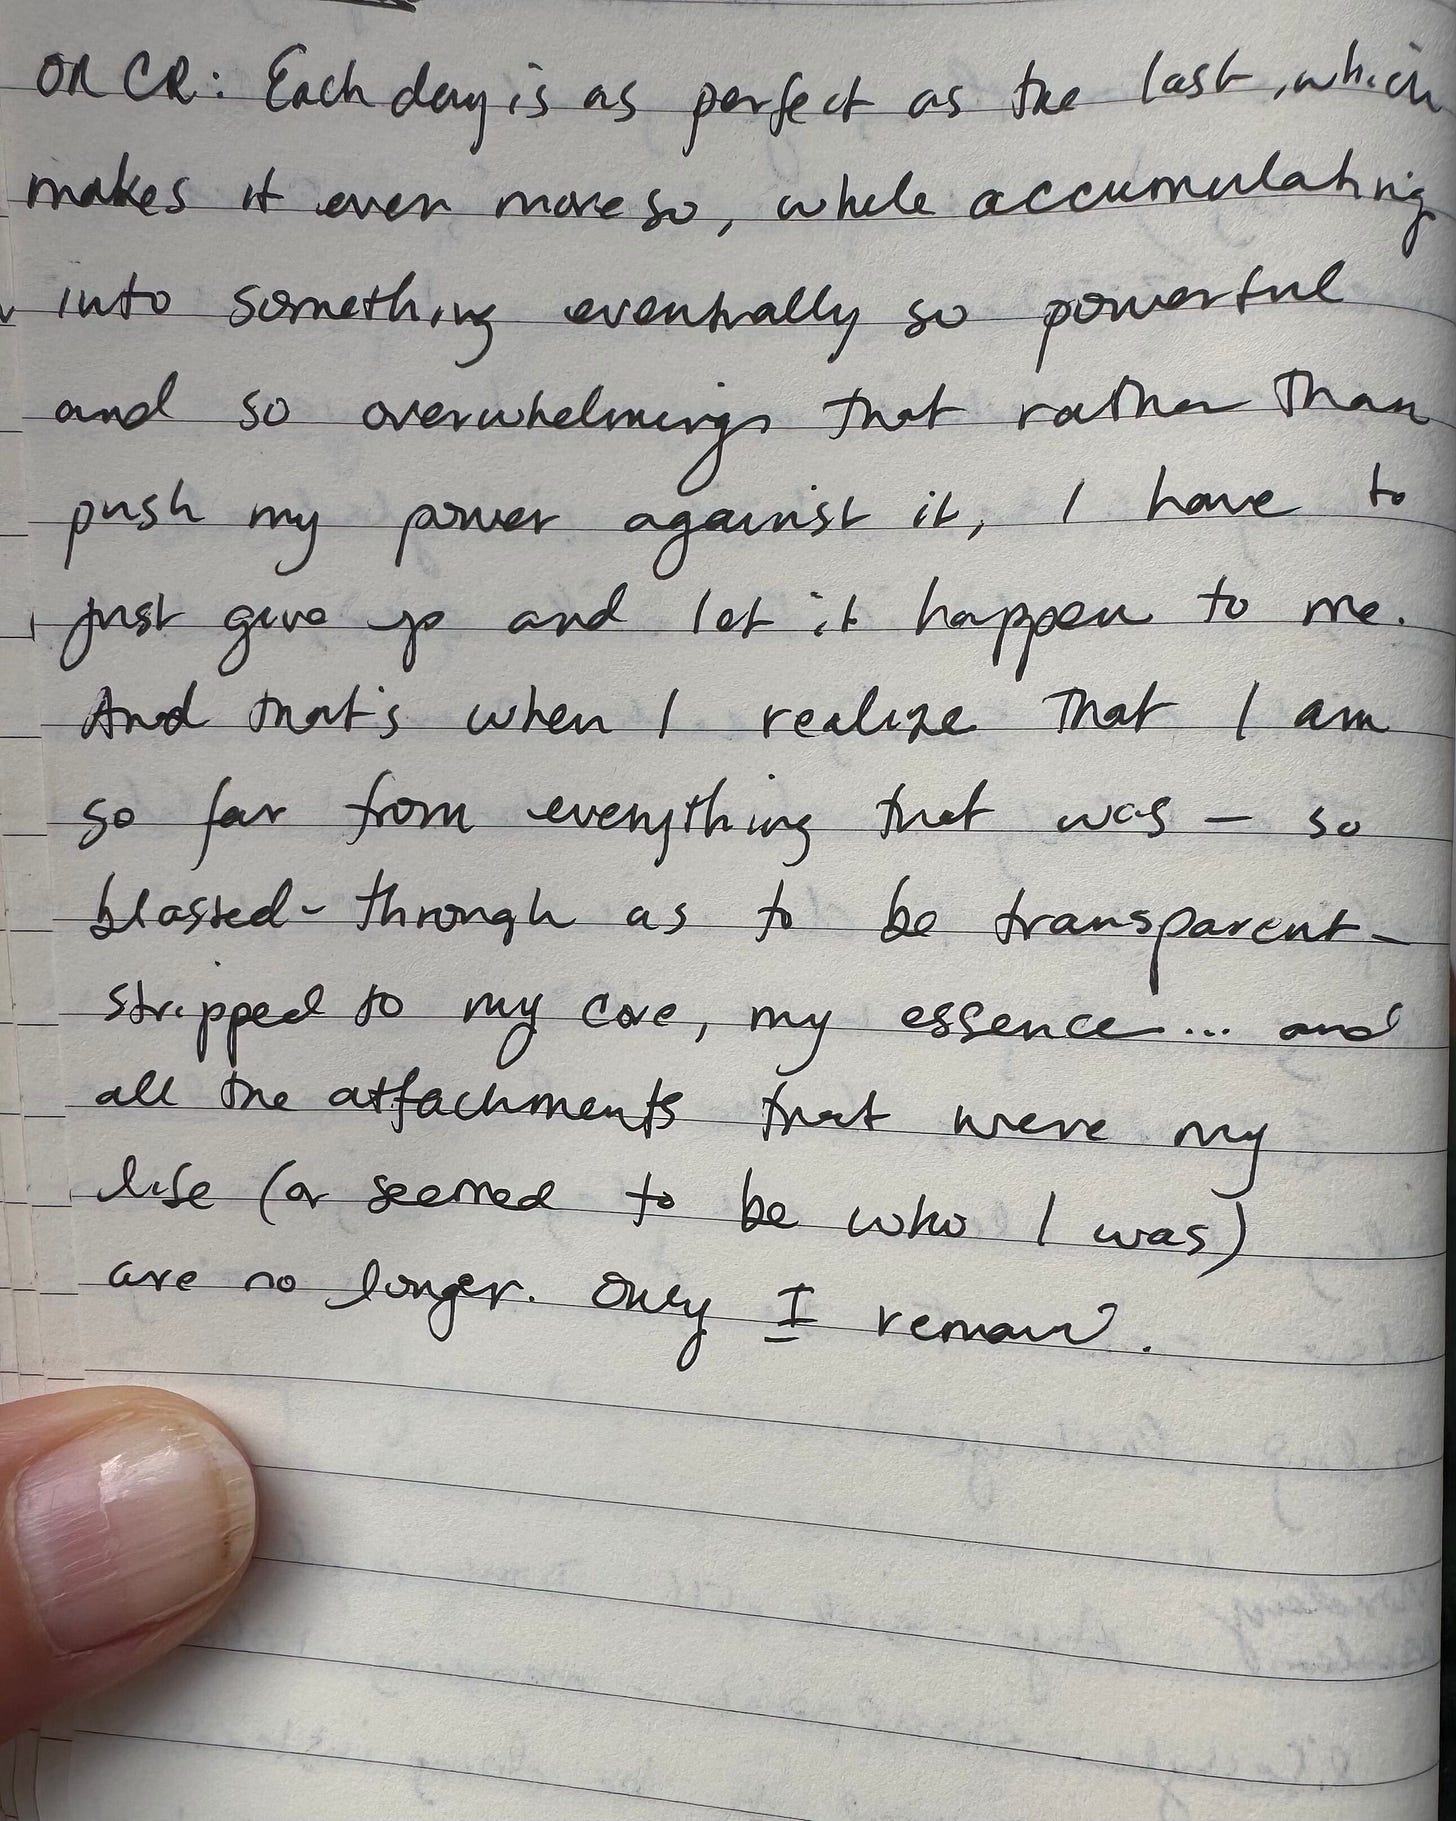 ON CR: Each day is as perfect as the last, which
makes it even more so, while accumulating
into something eventually so powerful
and so overwhelming that rather than
push my power against it, I have to
just give up and let it happen to me.
And that's when I realize that I am
so far from everything that was – so
blasted-through as to be transparent –
stripped to my core, my essence... and
all the attachments that were my
life (or seemed to be who I was)
are no longer. Only I remain.